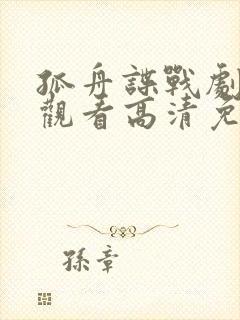 孤舟諜戰劇
觀看高清免
孫章